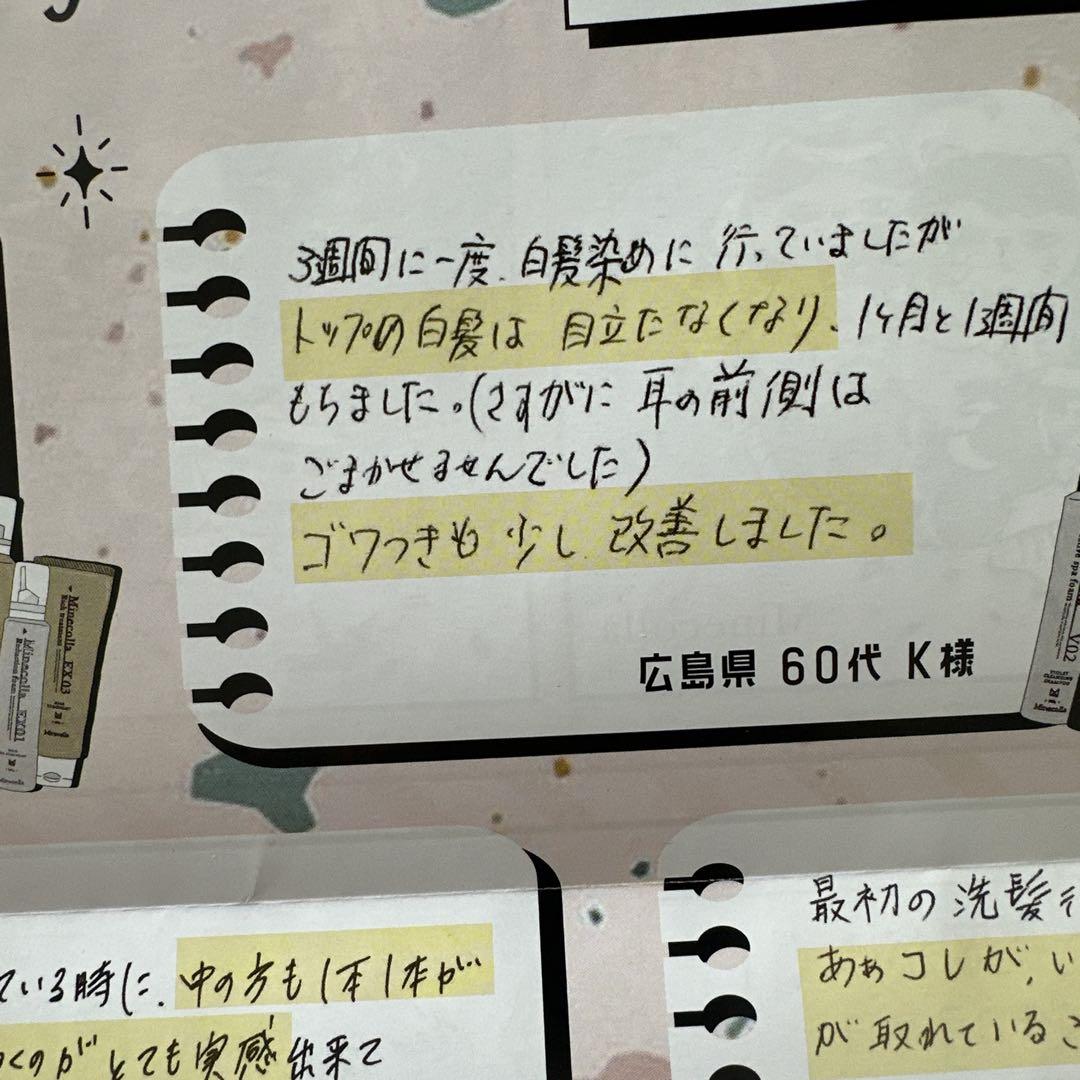 3週間に一度、白髪染めに行っていましたが
トップの白髪は目立たなくなり、1ヶ月と1週間
もちました。(さすがに耳の前側は
ごまかせませんでした)
ゴワつきも少し改善しました。
広島県 60代 K様
Minecolla EX03
Rich treatment
Minecolla EX01
Reduction foam
Minecolla
spa foam
V02
VIOLET
CLEANSING
SHAMPOO
Minecolla
ている時に、中の方も1本1本が
くのがとても実感出来て
最初の洗髪
あぁコレが、い
が取れているこ